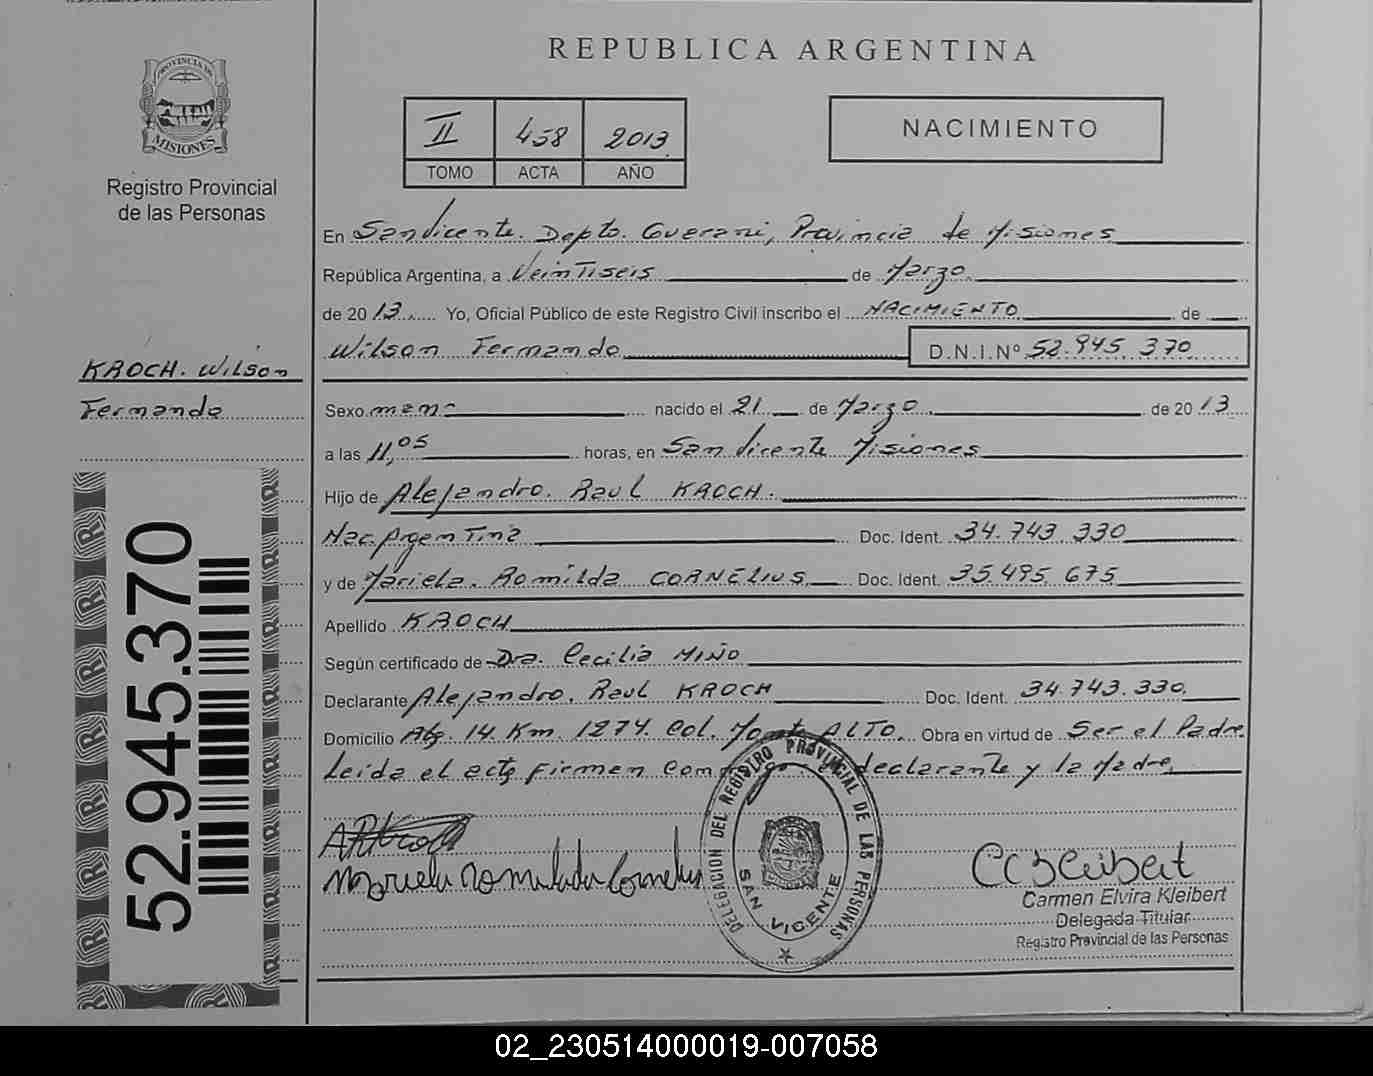 REPUBLICA ARGENTINA
PROVINCIA DE
MISIONES
Registro Provincial
de las Personas
II 458 2013
TOMO ACTA AÑO
NACIMIENTO
En San Vicente. Depto. Guarani, Provincia de Misiones
República Argentina, a Veintiseis de Marzo
de 2013 Yo, Oficial Público de este Registro Civil inscribo el NACIMIENTO de
Wilson Fernando D.N.I.Nº 52.945.370
KROCH. Wilson
Fernando
Sexo masc nacido el 21 de Marzo de 2013
a las 11,05 horas, en San Vicente Misiones
Hijo de Alejandro. Raul KROCH.
Nac. Argentina Doc. Ident. 34.743.330
y de Mariela. Romilda CORNELIUS Doc. Ident. 35.495.675
Apellido KROCH
Según certificado de Dra. Cecilia MIÑO
Declarante Alejandro. Raul KROCH Doc. Ident. 34.743.330
Domicilio 14 Km. 1274. Col. ALTO. Obra en virtud de Ser el Padre
Leida el acta Firman declarante y la Madre
52.945.370
Mariela Romilda Cornelius
DELEGACION DEL REGISTRO PROVINCIAL DE LAS PERSONAS
SAN VICENTE
Carmen Elvira Kleibert
Delegada Titular
Registro Provincial de las Personas
02_230514000019-007058